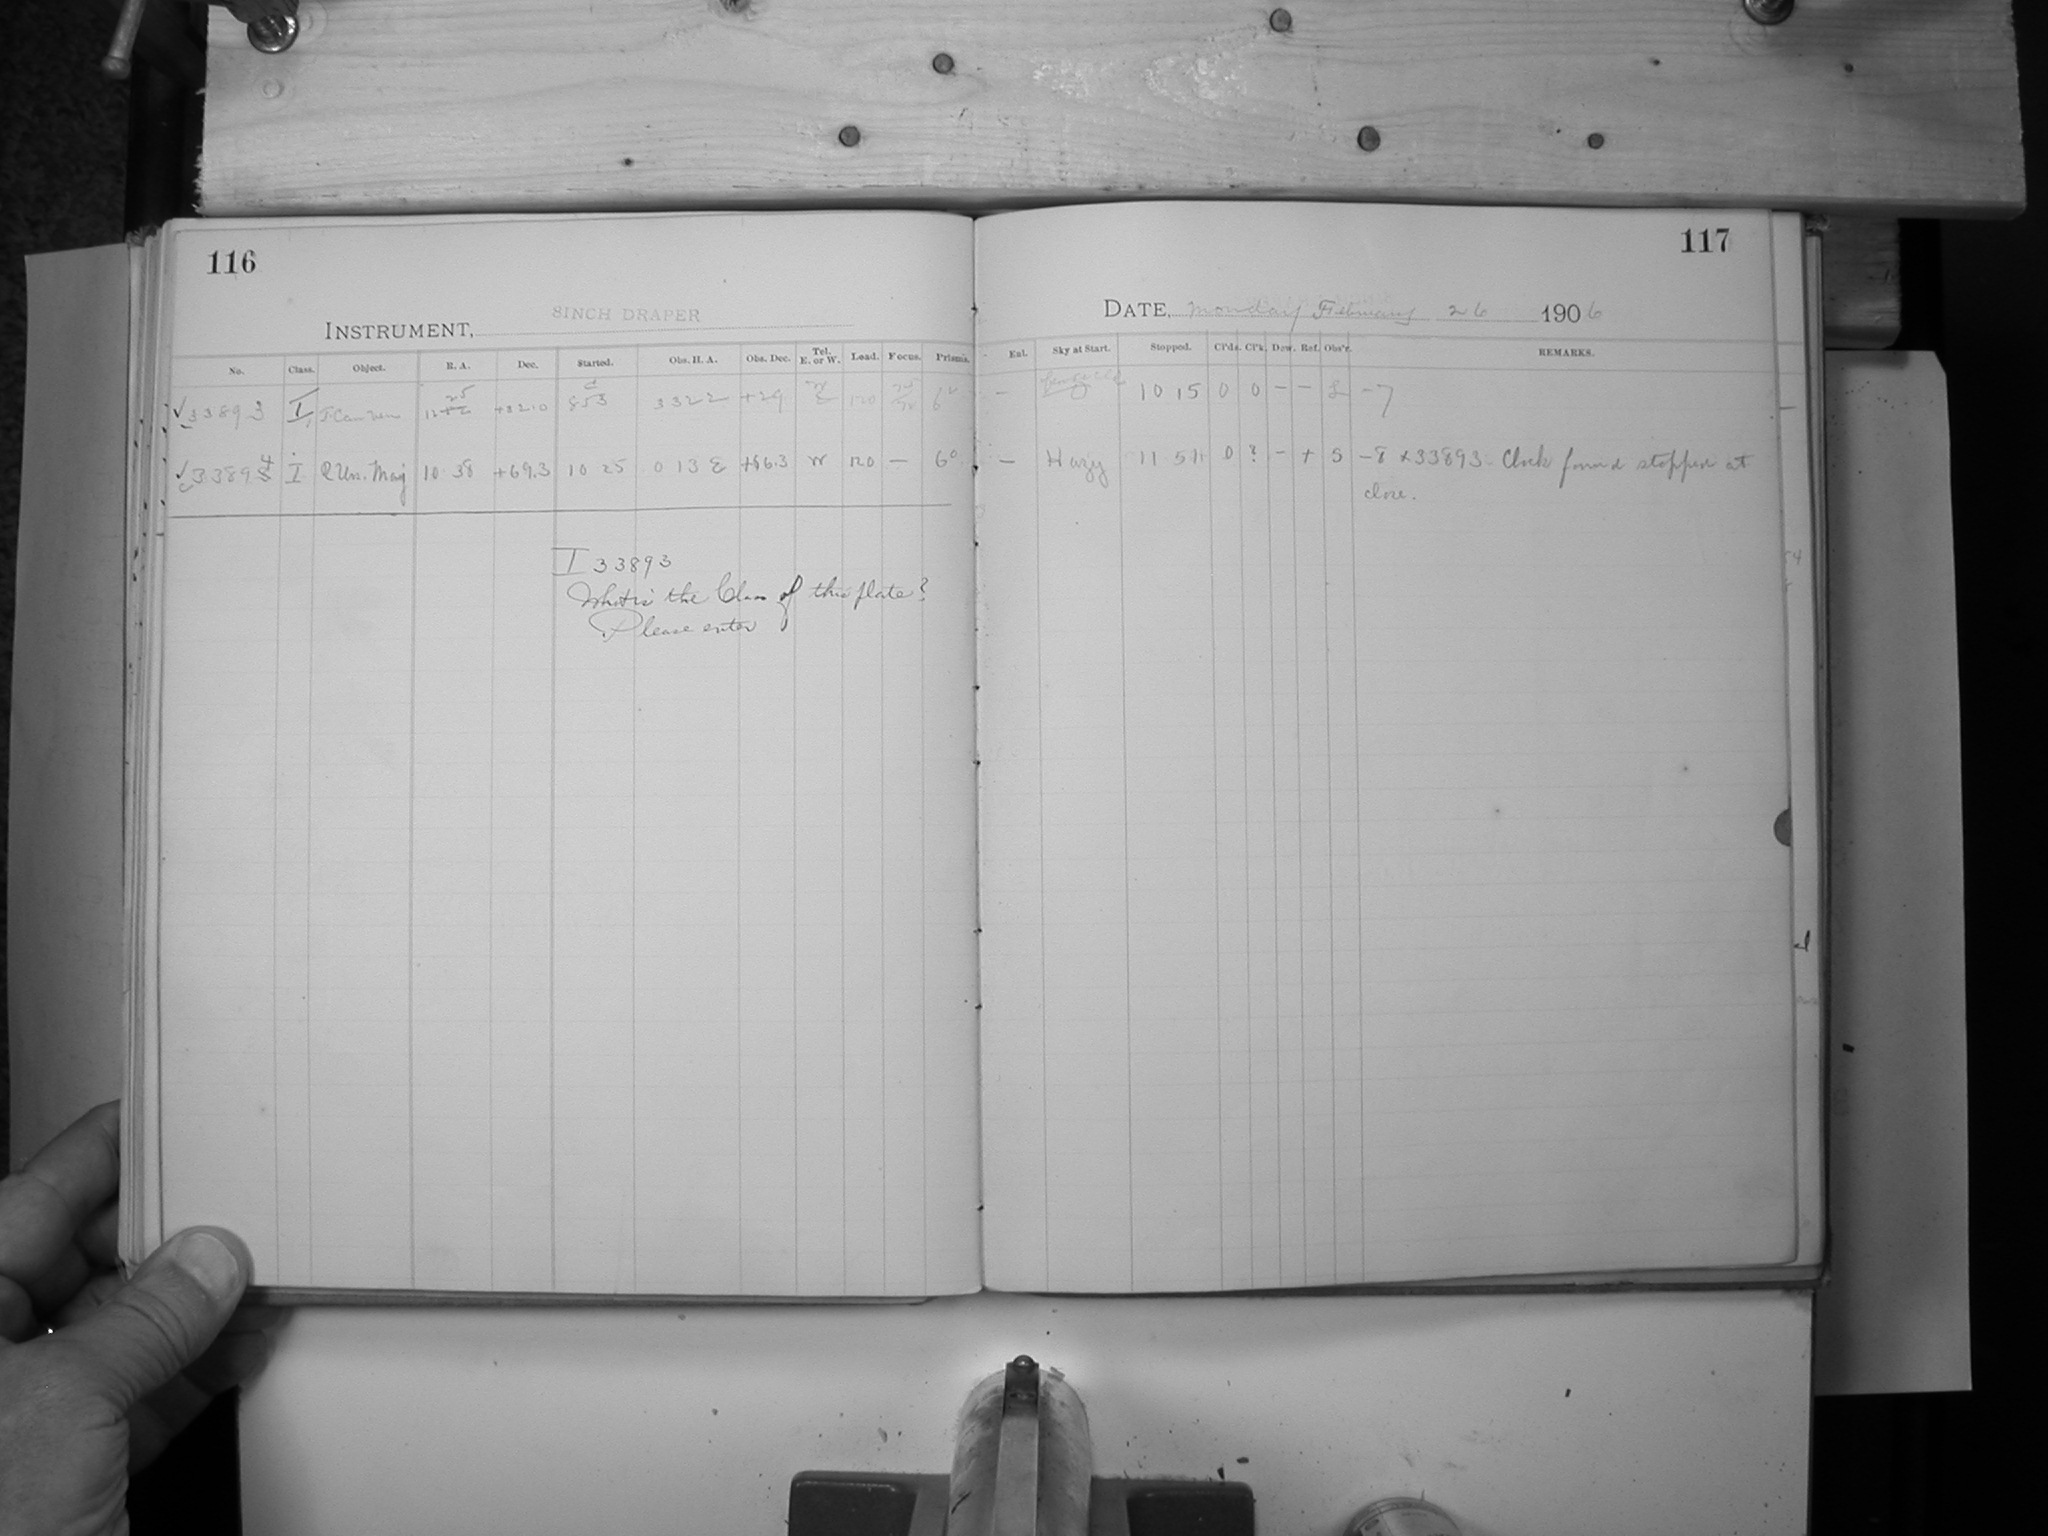 116
117
INSTRUMENT, 8INCH DRAPER
DATE, Monday February 26 1906
No. Class. Object. R. A. Dec. Started. Obs. H. A. Obs. Dec. Tel. E. or W. Load. Focus. Prisms. Enl. Sky at Start. Stopped. Cl'ds. Cl'k. Dew. Ref. Obs'r. REMARKS.
✓ 33893 I T Can Ven +32.0 8 53 3 32 2 +29 E 120 6° — 10 15 0 0 – – -7
✓ 33894 I R Urs. Maj 10 38 +69.3 10 25 0 13 E +66.3 W 120 — 6° — Hazy 11 51 0 ? – + S -8 × 33893. Clock found stopped at
close.
I 33893
What is the Class of this plate?
Please enter